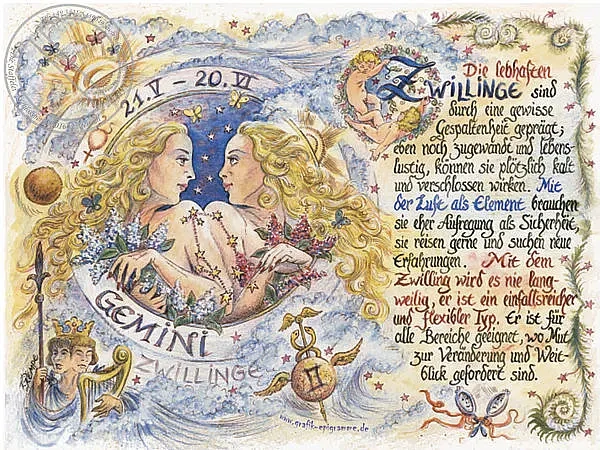 21.V 20.VI
GEMINI
ZWILLINGE
www.grafik-epigramme.de
Die lebhaften
ZWILLINGE sind
durch eine gewisse
Gespaltenheit geprägt;
eben noch zugewandt und lebens-
lustig, können sie plötzlich kalt
und verschlossen wirken. Mit
der Luft als Element brauchen
sie eher Aufregung als Sicherheit,
sie reisen gerne und suchen neue
Erfahrungen. Mit dem
Zwilling wird es nie lang-
weilig, er ist ein einfallsreicher
und flexibler Typ. Er ist für
alle Bereiche geeignet, wo Mut
zur Veränderung und Weit-
blick gefordert sind.